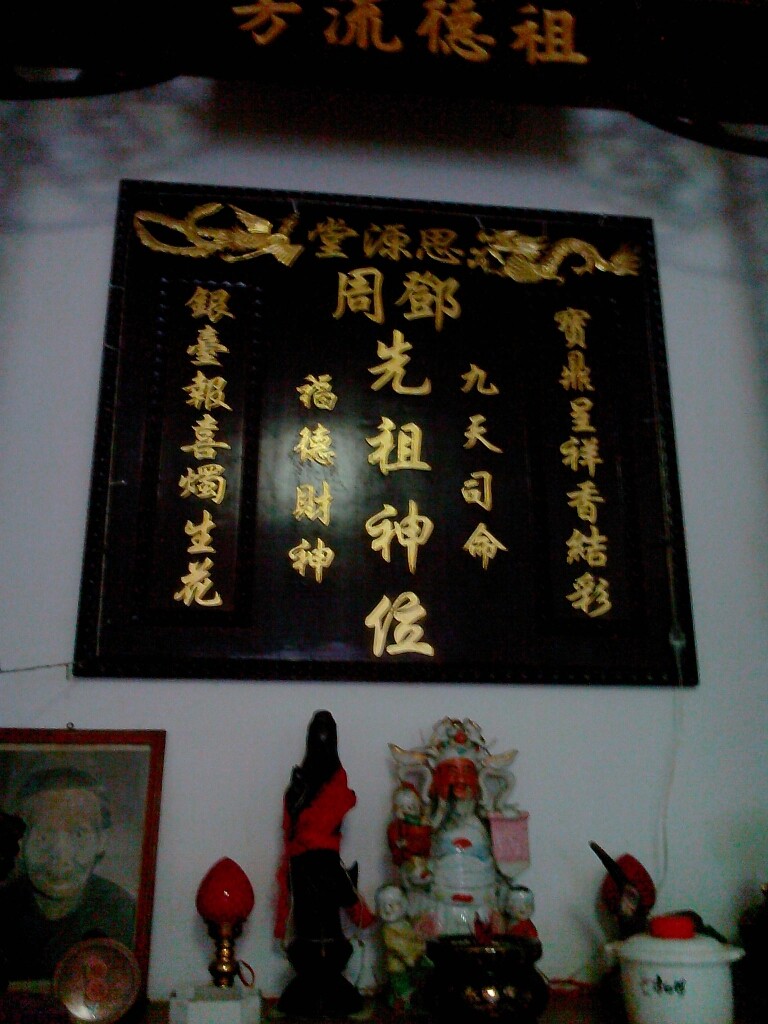 祖德流芳
思源堂
鄧周
寶鼎呈祥香結彩
九天司命
先祖神位
福德財神
銀臺報喜燭生花